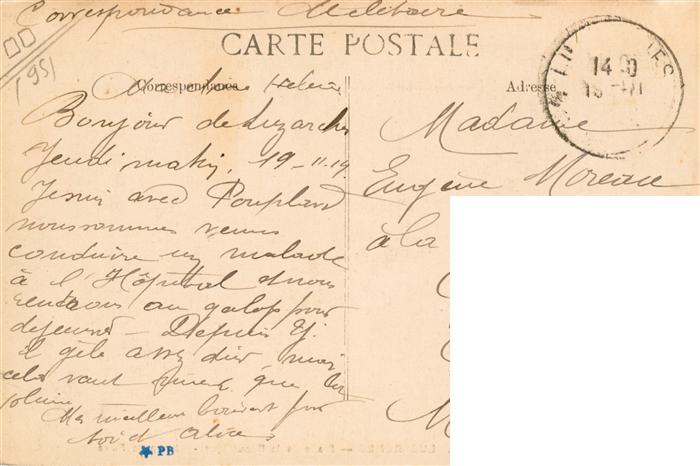 Correspondance Militaire
CARTE POSTALE
(951
Correspondance
Adresse
Ma chère Hélène
Bonjour de Luzarches
Jeudi matin, 19-11-14
Je suis avec Pouplard
nous sommes venus
conduire un malade
à l'Hôpital et nous
rentrons au galop pour
dejeuner - Depuis
il gèle assez dur, mais
cela vaut mieux que la
pluie
Mes meilleurs baisers pour
toi
Madame
Eugène Moreau
à la
M
14 30
PB